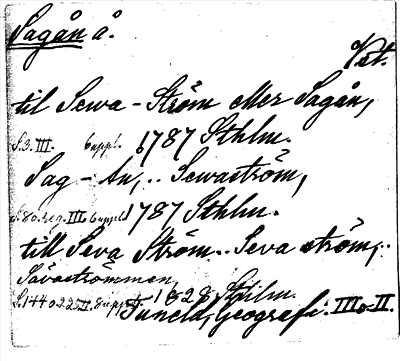 Sagån å.
Vst.
til Sewa - Ström eller Sagån,
S. 3. III. 6 uppl. 1787 Sthlm.
Sag - ån, .. Sewaström,
S. 80. reg. III 6 uppl. 1787 Sthlm.
till Seva Ström .. Seva ström, ..
Sävaströmmen,
S. 144 o 225 II. 8 uppl. 1828 Sthlm.
Tuneld, Geografi. III o. II.